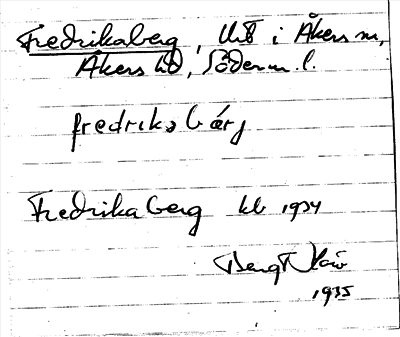 Fredrikaberg, Utb i Åkers sn,
Åkers hd, Söderm. l.
fredriksbärj
Fredrikaberg kb 1934
Bengt
1935